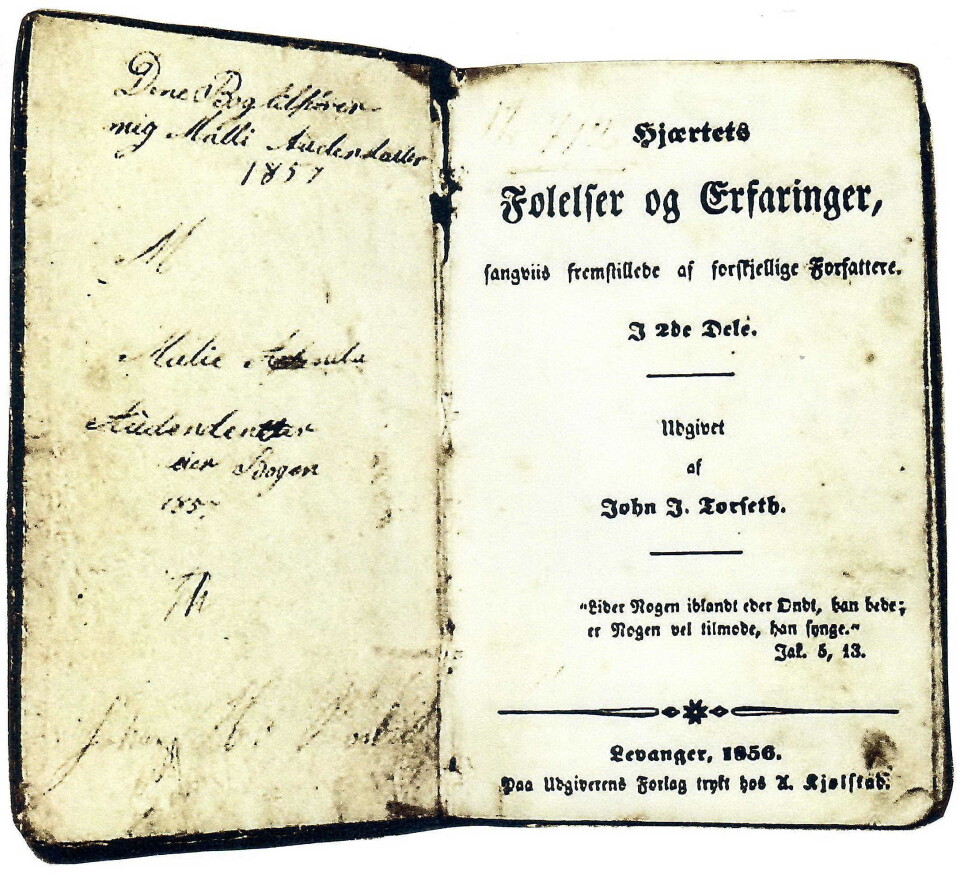 Dene Bog tilhörer
mig Malli Audensdatter
1857
M
Malie
Audendentter
eier Bogen
1857
Th
Hjærtets
Følelser og Erfaringer,
sangviis fremstillede af forskjellige Forfattere.
I 2de Dele.
Udgivet
af
John J. Torseth.
"Lider Nogen iblandt eder Ondt, han bede;
er Nogen vel tilmode, han synge."
Jak. 5, 13.
Levanger, 1856.
Paa Udgiverens Forlag trykt hos A. Kjølstad.